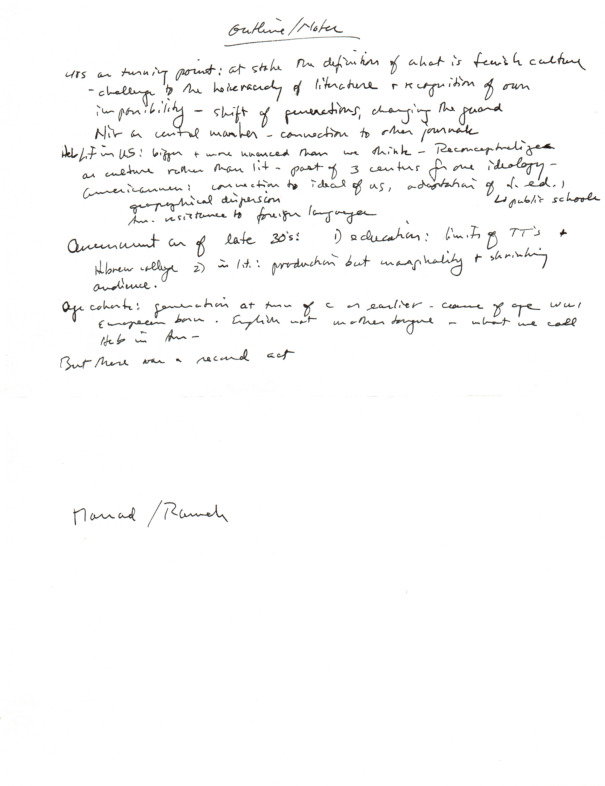 Outline/Notes
as turning point: at stake the definition of what is Jewish culture
- challenge to the heteronomy of literature + recognition of own
impossibility - shift of generations, changing the guard
Niv as central marker - connection to other journals
Heb Lit in US: bigger + more nuanced than we think - Reconceptualize
as culture rather than lit - part of 3 centers for one ideology -
Americanness: connection to ideal of US, adaptation of J. ed.,
geographical dispersion ↳ public schools
Am. resistance to foreign languages
Assessment as of late 30's: 1) education: limits of TT's +
Hebrew college 2) in lit.: production but marginality + shrinking
audience.
Age cohorts: generation at turn of c or earlier - came of age WWI
European born. English not mother tongue - what we call
Heb in Am -
But there was a second act
/Ramah